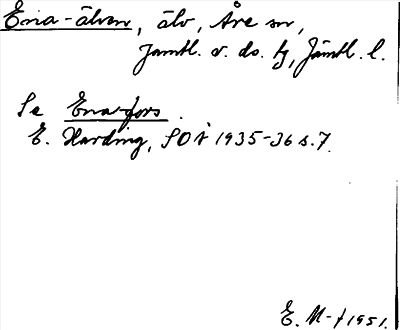 Ena-älven, älv, Åre sn,
Jämtl. v. ds. tg, Jämtl. l.
Se Enafors.
E. Harding, SOÅ 1935-36 s. 7.
E. M-f 1951.